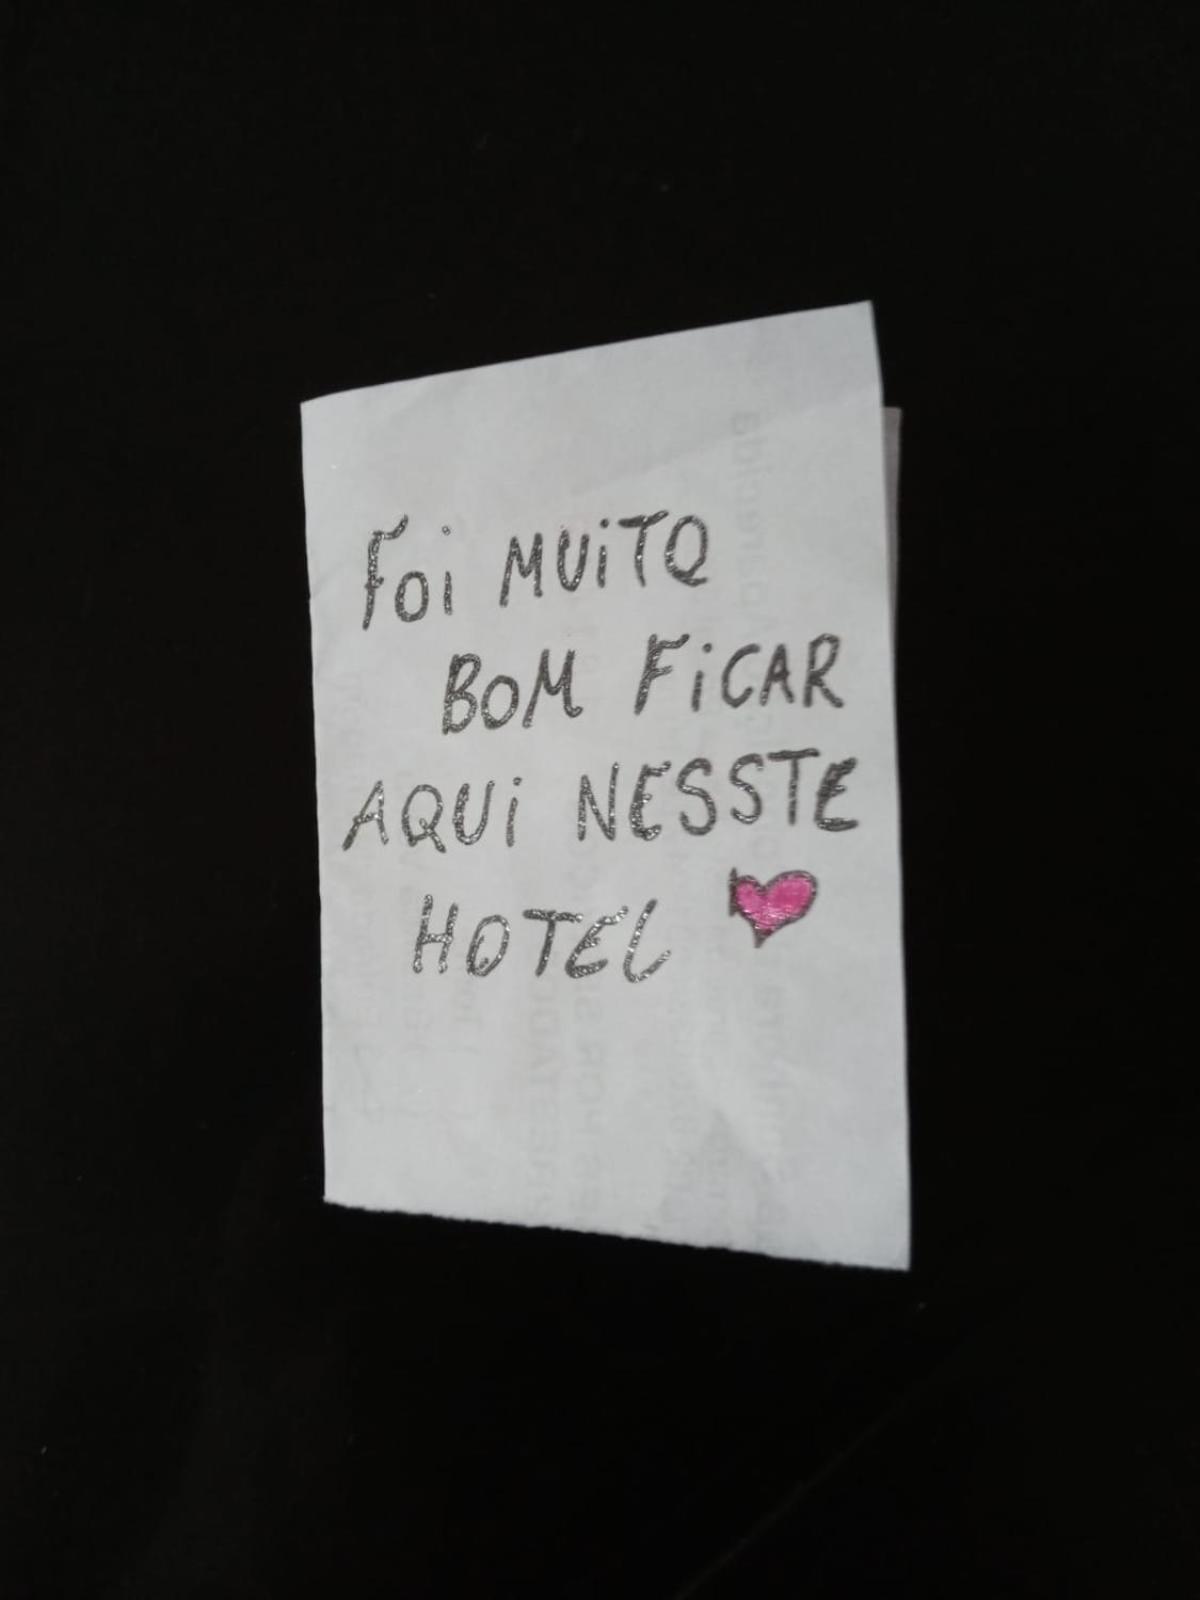 Foi MUiTO
BOM FiCAR
AQUi NESSTE
HOTEL